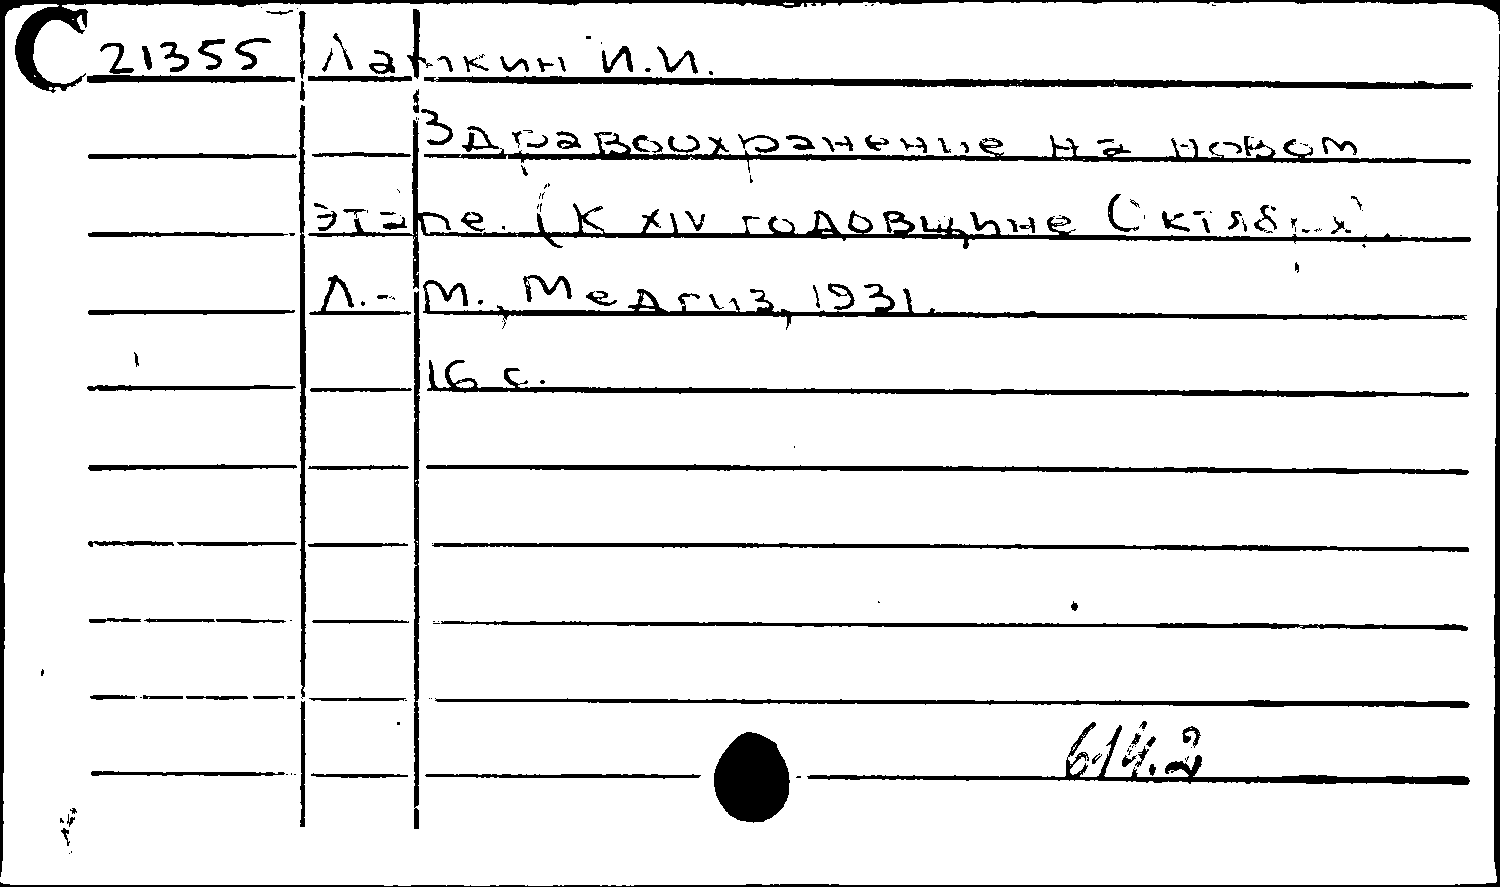 C 21355 Латкин И.И.
Здравоохранение на новом
этапе. (К XIV годовщине Октября).
Л.-М., Медгиз, 1931.
16 с.
614.2